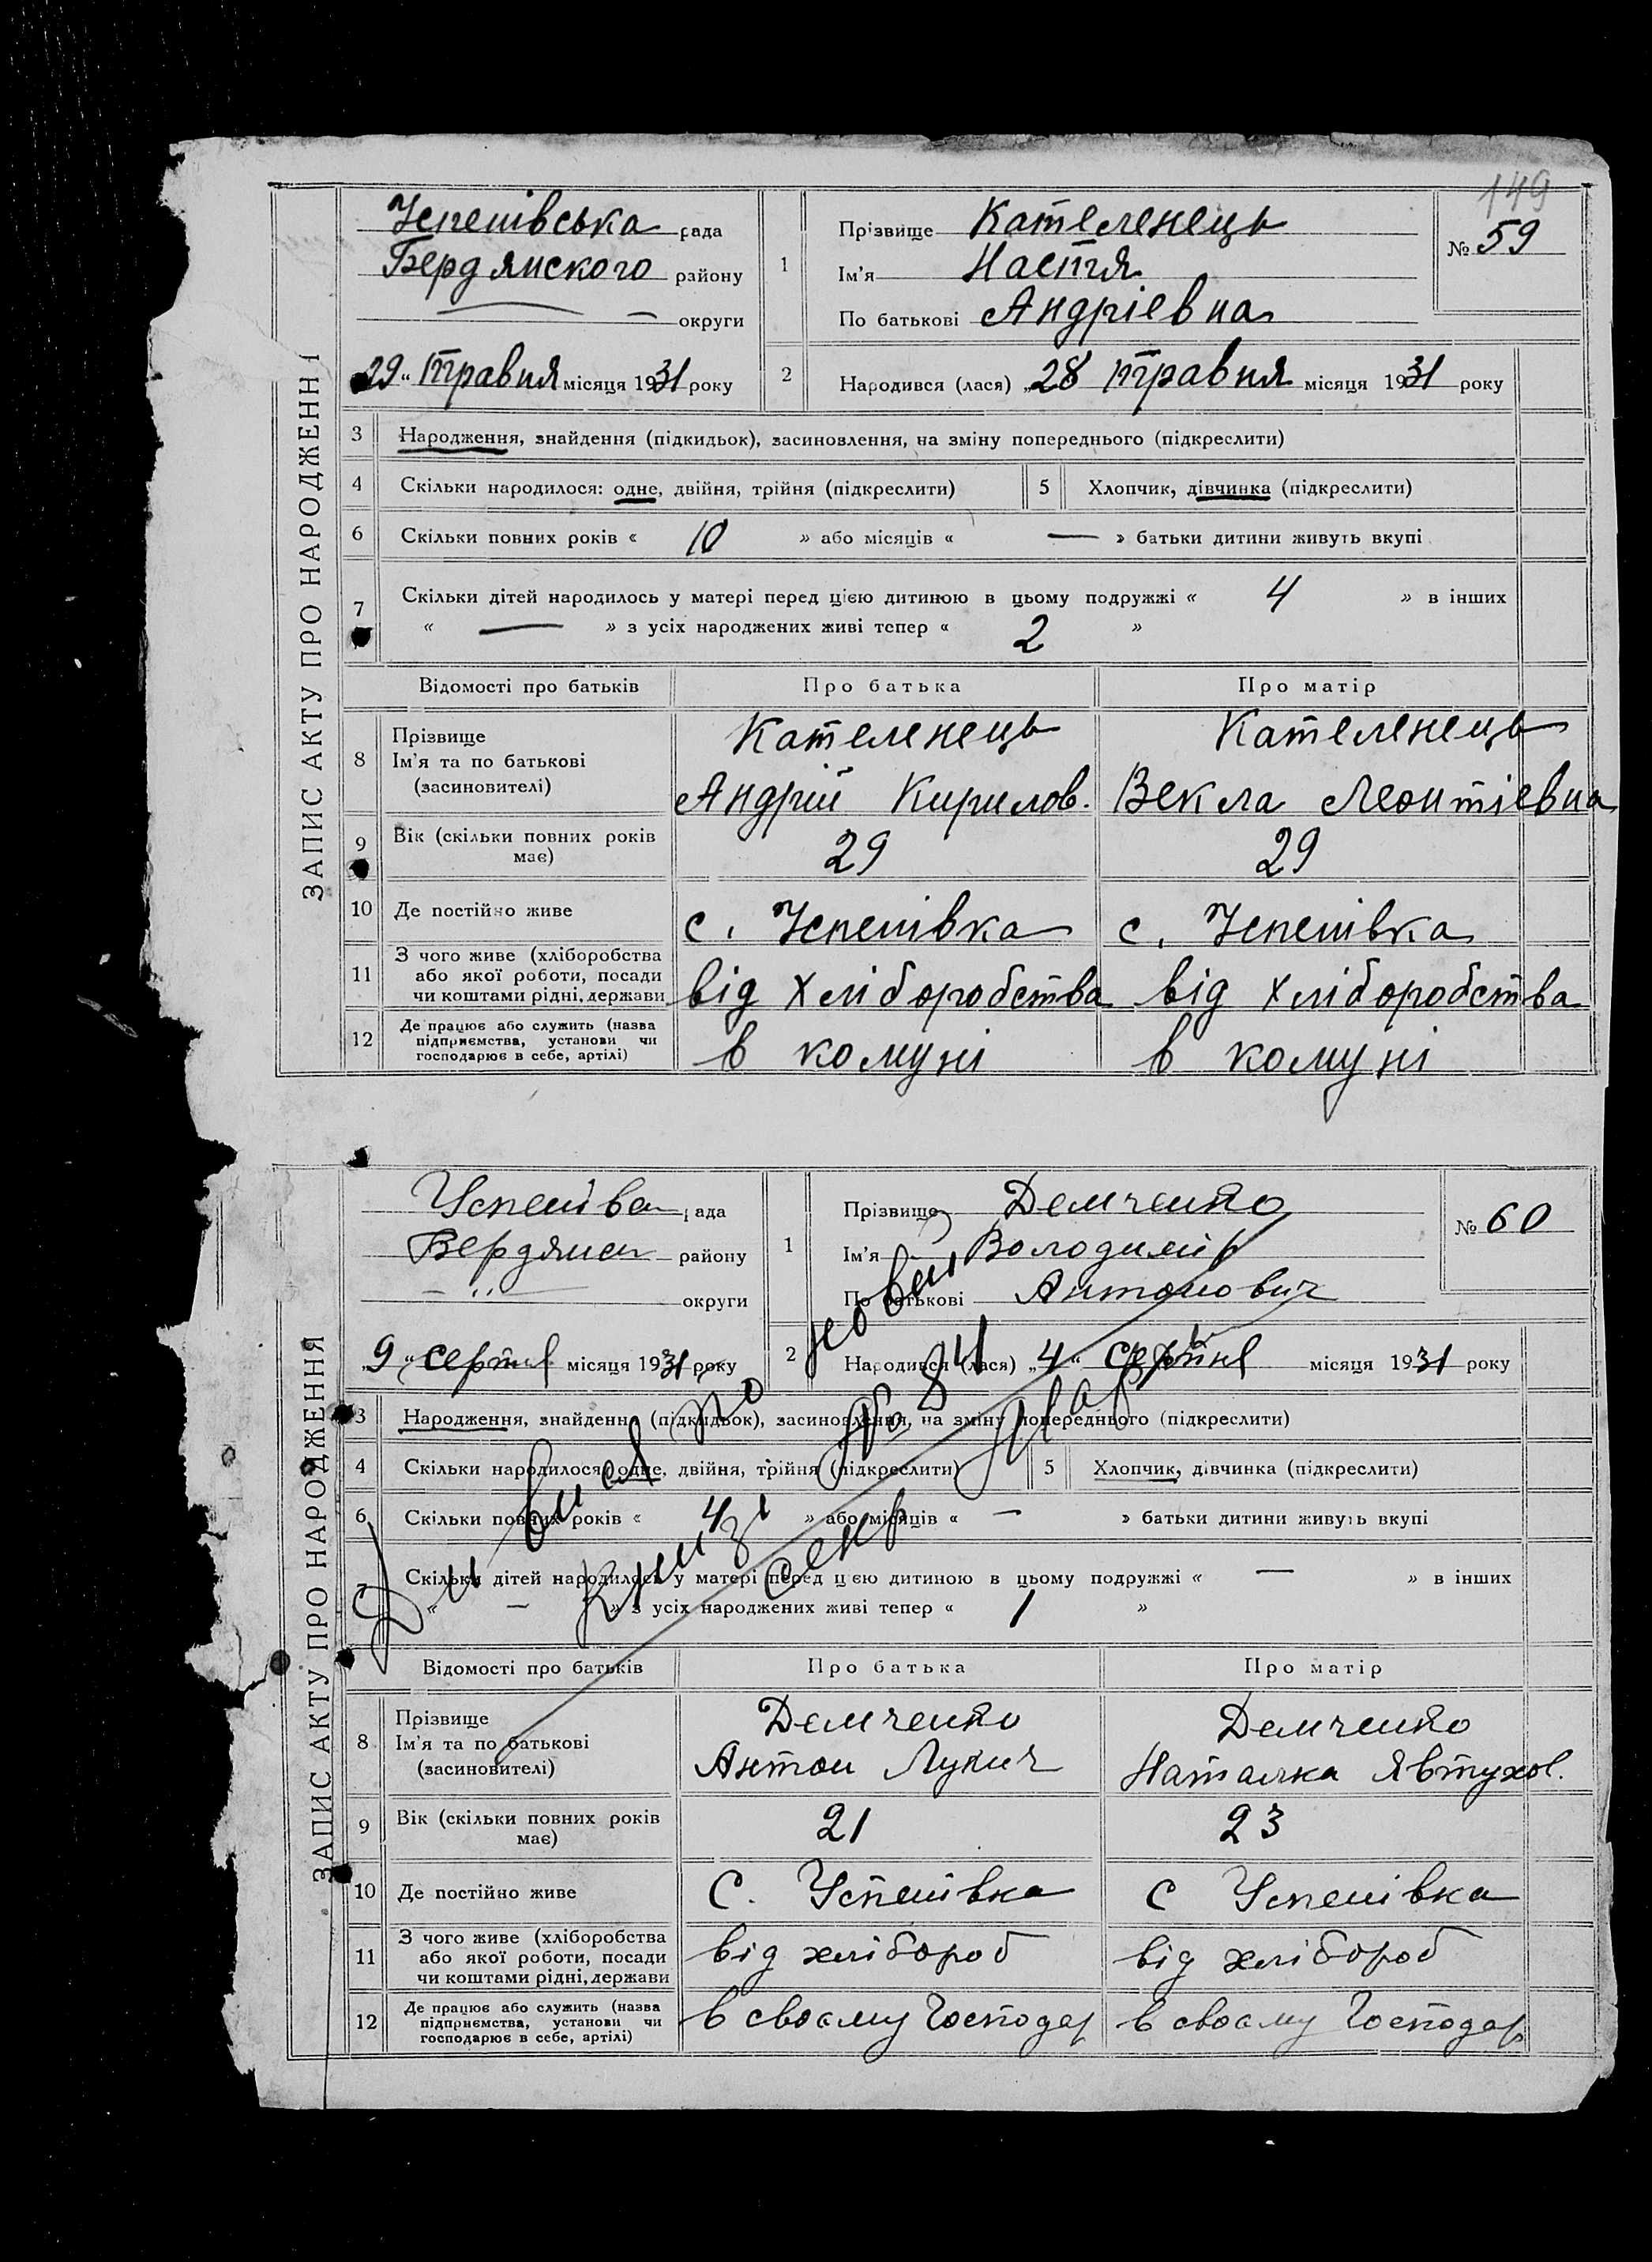 149
ЗАПИС АКТУ ПРО НАРОДЖЕНН
Успенівська рада
Бердянского району
— округи
29 " травня місяця 1931 року
1
Прізвище Кателенець
Ім'я Настя
По батькові Андріевна
№ 59
2 Народився (лася) „28 травня місяця 1931 року
3 Народження, знайдення (підкидьок), засиновлення, на зміну попереднього (підкреслити)
4 Скільки народилося: одне, двійня, трійня (підкреслити) 5 Хлопчик, дівчинка (підкреслити)
6 Скільки повних років « 10 » або місяців « — » батьки дитини живуть вкупі
7 Скільки дітей народилось у матері перед цією дитиною в цьому подружжі « 4 » в інших
« — » з усіх народжених живі тепер « 2 »
Відомості про батьків Про батька Про матір
8 Прізвище Ім'я та по батькові (засиновителі)
Кателенець Кателенець
Андрій Кирилов. Векла Леонтіевна
9 Вік (скільки повних років має) 29 29
10 Де постійно живе с. Успенівка с. Успенівка
11 З чого живе (хліборобства або якої роботи, посади чи коштами рідні, держави
від хліборобства від хліборобства
12 Де працює або служить (назва підприємства, установи чи господарює в себе, артілі)
в комуні в комуні
ЗАПИС АКТУ ПРО НАРОДЖЕННЯ
Успенівсь рада
Бердянсь району
— " — округи
„9" серпня місяця 1931 року
1
Прізвище Демченко
Ім'я Володимір
По батькові Антонович
№ 60
2 Народився (лася) „4" серпня місяця 1931 року
3 Народження, знайденн (підкидьок), засиновлення, на зміну попереднього (підкреслити)
4 Скільки народилося: одне, двійня, трійня (підкреслити) 5 Хлопчик, дівчинка (підкреслити)
6 Скільки повних років « 4 » або місяців « — » батьки дитини живуть вкупі
7 Скільки дітей народилось у матері перед цією дитиною в цьому подружжі « — » в інших
« — » з усіх народжених живі тепер « 1 »
Відомості про батьків Про батька Про матір
8 Прізвище Ім'я та по батькові (засиновителі)
Демченко Демченко
Антон Лукич Наталка Явтухов.
9 Вік (скільки повних років має) 21 23
10 Де постійно живе с. Успенівка с Успенівка
11 З чого живе (хліборобства або якої роботи, посади чи коштами рідні, держави
від хлібороб від хлібороб
12 Де працює або служить (назва підприємства, установи чи господарює в себе, артілі)
в своєму господар в своєму господар